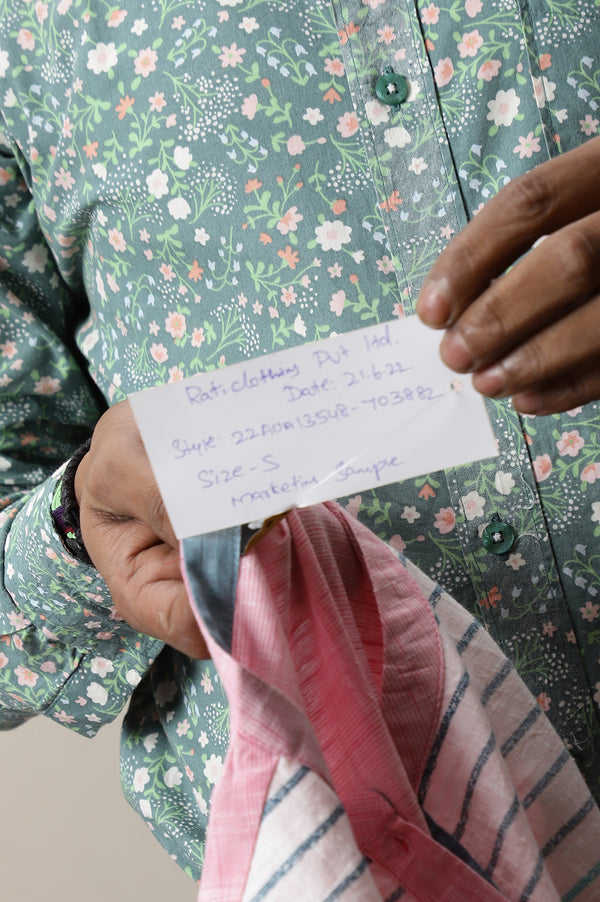 Rat.clothing Pvt ltd.
Date: 21.6.22
Style: 22AUA13548-703882
Size-S
Marketing Sample